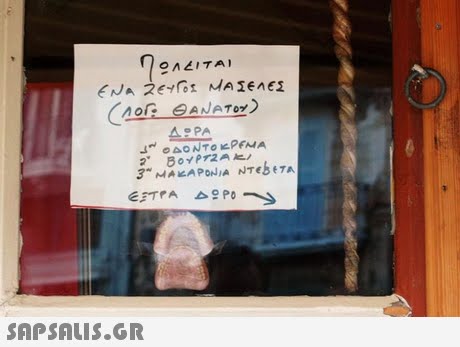 Πωλειται
ενα ζευγος μασελες
(λογο θανατου)
Δωρα
1ον οδοντοκρεμα
2ον βουρτζακι
3ον μακαρονια ντεbετα
εξτρα δωρο →
SAPSALIS.GR